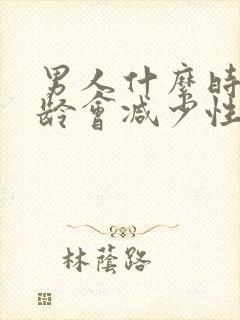 男人什麼時
齡會減少性
林蔭路